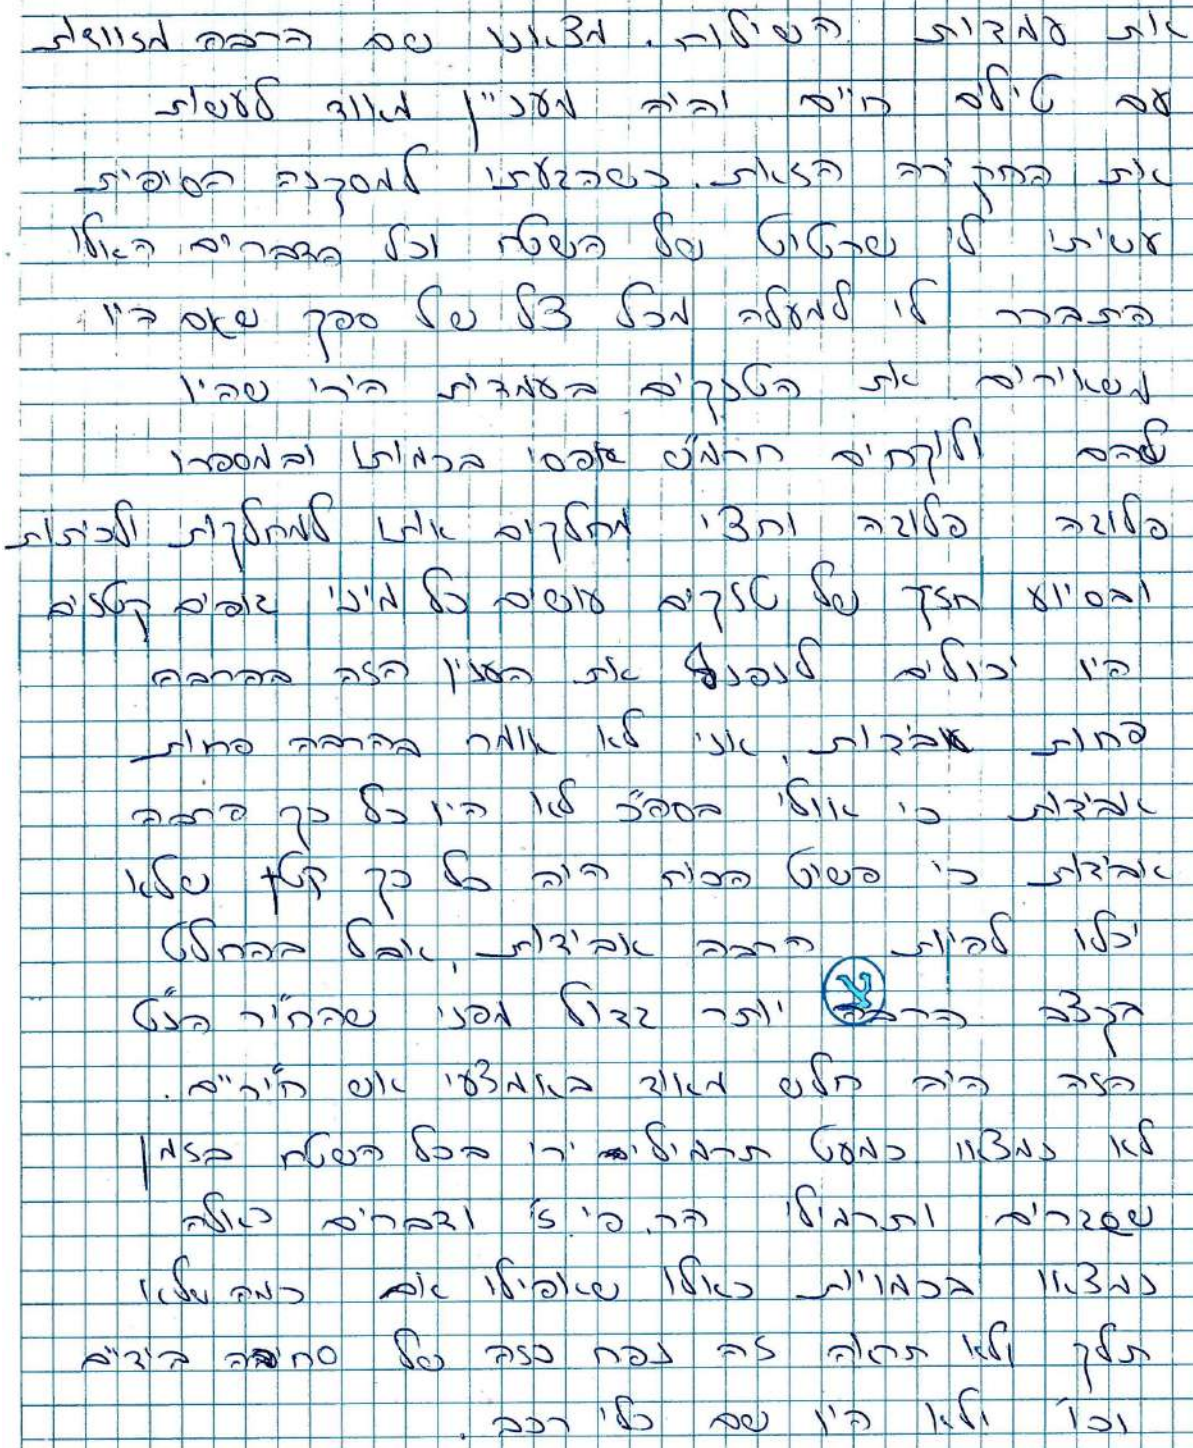 את עמדות השילוח. מצאנו שם הרבה מזוודות
עם טילים חיים והיה מעניין מאוד לעשות
את החקירה הזאת. כשהגעתי למסקנה הסופית
עשיתי לי שרטוט של השטח וכל הדברים האלו
התברר לי למעלה מכל צל של ספק שאם היו
משאירים את הטנקים בעמדות הירי שהיו
להם ולוקחים חרמ"ש אפסי בכמותו ובמספרו
פלוגה פלוגה וחצי מחלקים אותו למחלקות ולכיתות
ובסיוע חזק של טנקים עושים כל מיני גופים קטנים
היו יכולים לנפנף את הענין הזה בהרבה
פחות אבידות. אני לא אומר בהרבה פחות
אבידות כי אולי בסה"כ לא היו כל כך הרבה
אבידות כי פשוט הכוח היה כל כך קטן שלא
יכלו להיות הרבה אבידות, אבל בהחלט
בקצב הרבה יותר גדול מפני שהחי"ר הנ"ט
הזה היה חלש מאוד באמצעי אש חי"רים.
לא נמצאו כמעט תרמילים ירי בכל השטח בזמן
ששברים ותרמילי הר. פי. ג'י ודברים כאלה
נמצאו בכמויות כאלו שאפילו אם כמה שלא
תלך ולא תראה זה נפח כזה של סחיבה בידיים
וכו' ולא היו שם כלי רכב.